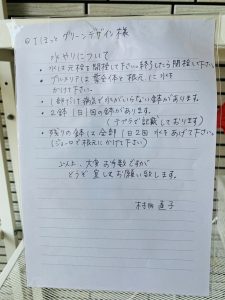 グリーンデザイン様
水やりについて
・水は元栓を開栓して下さい。終了したら閉栓して下さい。
・プルメリアは 全体と根元に水を
かけて下さい。
・1部だけ 水がいらない鉢があります。
・2鉢 1日1回の鉢があります。
(テプラで記載しております)
・残りの鉢は全部1日2回 水をあげて下さい。
(ジョーロで根元にかけて下さい)
以上、大変お手数ですが
どうぞ宜しくお願い致します。
直子